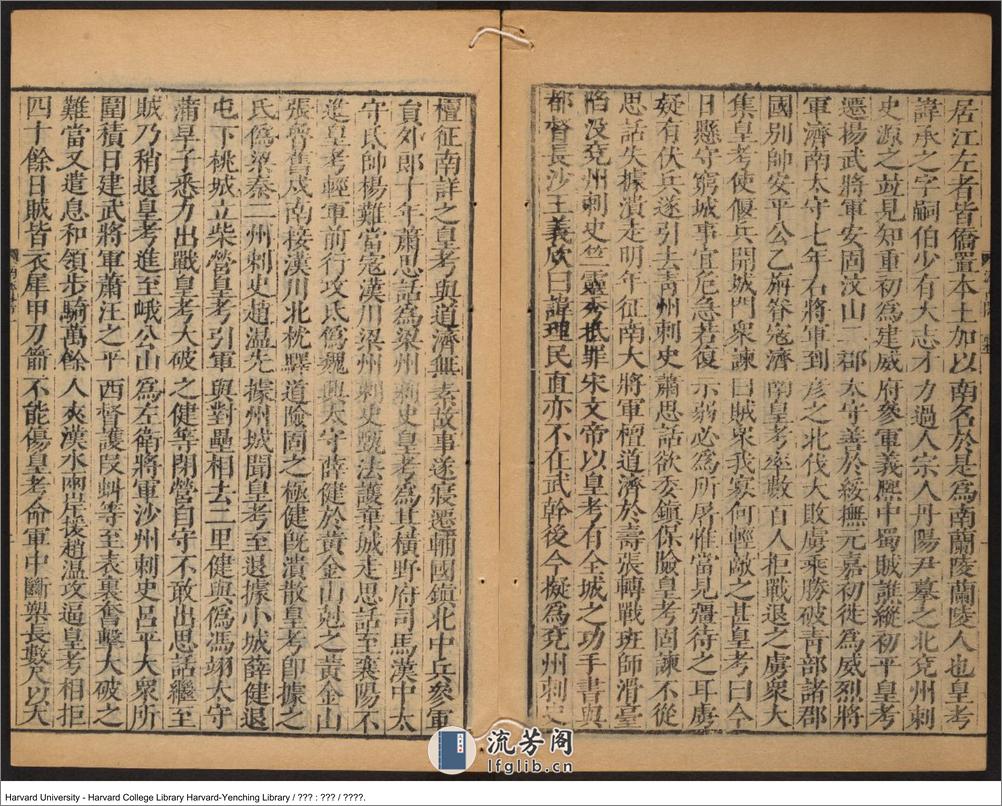 居江左者皆僑置本土加以南名於是為南蘭陵蘭陵人也皇考
諱承之字嗣伯少有大志才力過人宗人丹陽尹摹之北兗州刺
史源之並見知重初為建威府參軍義熙中蜀賊譙縱初平皇考
遷揚武將軍安固汶山二郡太守善於綏撫元嘉初徙為威烈將
軍濟南太守七年右將軍到彥之北伐大敗虜乘勝破青部諸郡
國別帥安平公乙旃眷寇濟南皇考率數百人拒戰退之虜衆大
集皇考使偃兵開城門衆諫曰賊衆我寡何輕敵之甚皇考曰今
日懸守窮城事宜危急若復示弱必為所屠惟當見彊待之耳虜
疑有伏兵遂引去青州刺史蕭思話欲委鎮保險皇考固諫不從
思話失據潰走明年征南大將軍檀道濟於壽張轉戰班師滑臺
陷没兗州刺史竺靈秀抵罪宋文帝以皇考有全城之功手書與
都督長沙王義欣曰諱理民直亦不在武幹後今擬為兗州刺史
檀征南詳之皇考與道濟無素故事遂寢遷輔國鎮北中兵參軍
員外郎十年蕭思話為梁州刺史皇考為其橫野府司馬漢中太
守氐帥楊難當寇漢川梁州刺史甄法護棄城走思話至襄陽不
進皇考輕軍前行攻氐偽魏興太守薛健於黃金山剋之黃金山
張魯舊戍南接漢川北枕驛道險固之極健既潰散皇考即據之
氐偽梁秦二州刺史趙温先據州城聞皇考至退據小城薛健退
屯下桃城立柴營皇考引軍與對壘相去二里健與偽馮翊太守
蒲早子悉力出戰皇考大破之健等閉營自守不敢出思話繼至
賊乃稍退皇考進至峨公山為左衛將軍沙州刺史呂平大衆所
圍積日建武將軍蕭汪之平西督護段虯等至表裏奮擊大破之
難當又遣息和領步騎萬餘人夾漢水兩岸援趙温攻逼皇考相拒
四十餘日賊皆衣犀甲刀箭不能傷皇考命軍中斷槊長數尺以大
流芳阁
lfglib.cn
Harvard University - Harvard College Library Harvard-Yenching Library / ??? : ??? / ????.